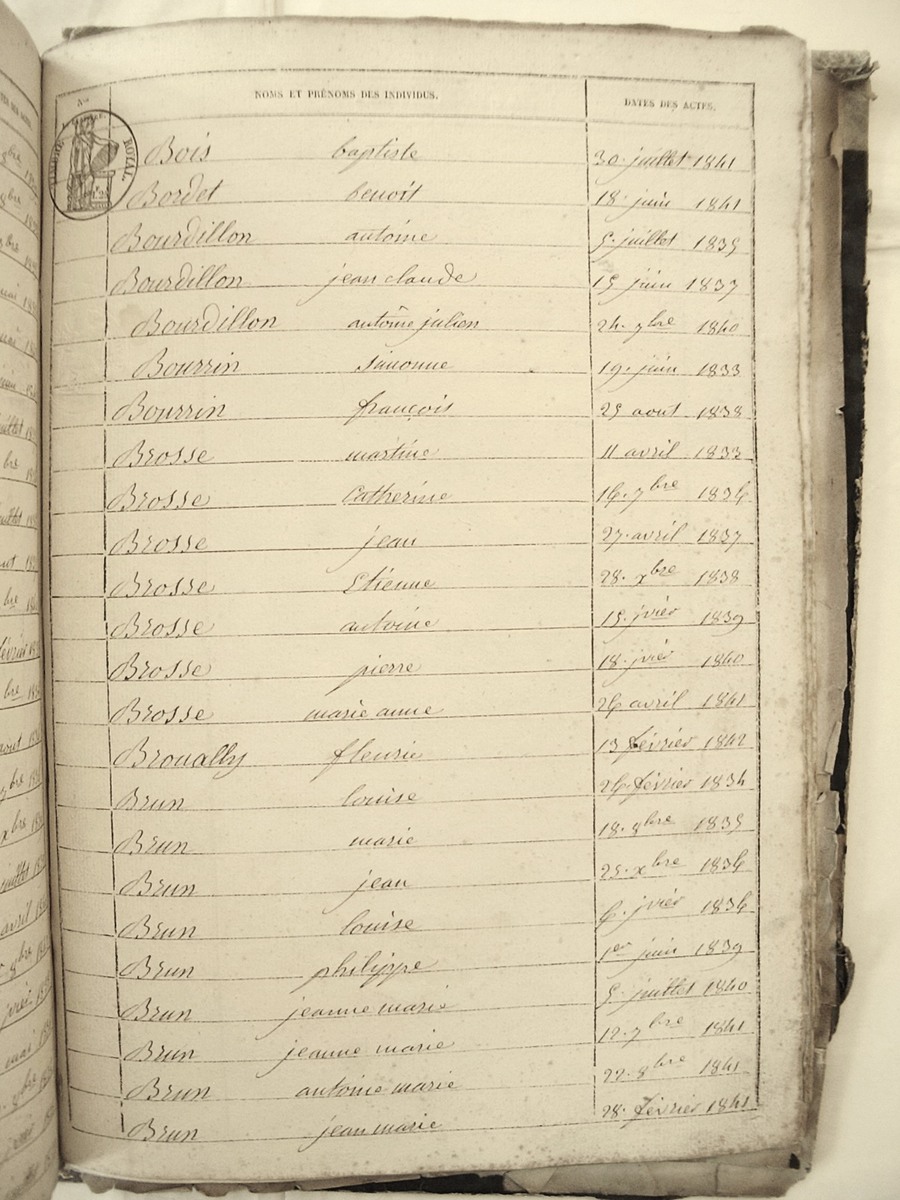 Nos
NOMS ET PRÉNOMS DES INDIVIDUS.
DATES DES ACTES.
TIMBRE ROYAL
Bois baptiste 30 juillet 1841
Bordet benoit 18 juin 1841
Bourdillon antoine 5 juillet 1835
Bourdillon jean claude 15 juin 1837
Bourdillon antoine julien 24 7bre 1840
Bourrin simonne 19 juin 1833
Bourrin françois 25 aout 1838
Brosse martine 11 avril 1833
Brosse Catherine 16 7bre 1836
Brosse jean 27 avril 1837
Brosse Etienne 28 xbre 1838
Brosse antoine 15 jvier 1839
Brosse pierre 18 jvier 1840
Brosse marie anne 26 avril 1841
Broually fleurie 13 février 1842
Brun louise 26 février 1834
Brun marie 18 8bre 1835
Brun jean 25 xbre 1836
Brun louise 6 jvier 1836
Brun philippe 1er juin 1839
Brun jeanne marie 5 juillet 1840
Brun jeanne marie 12 7bre 1841
Brun antoine marie 22 8bre 1841
Brun jean marie 28 février 1841